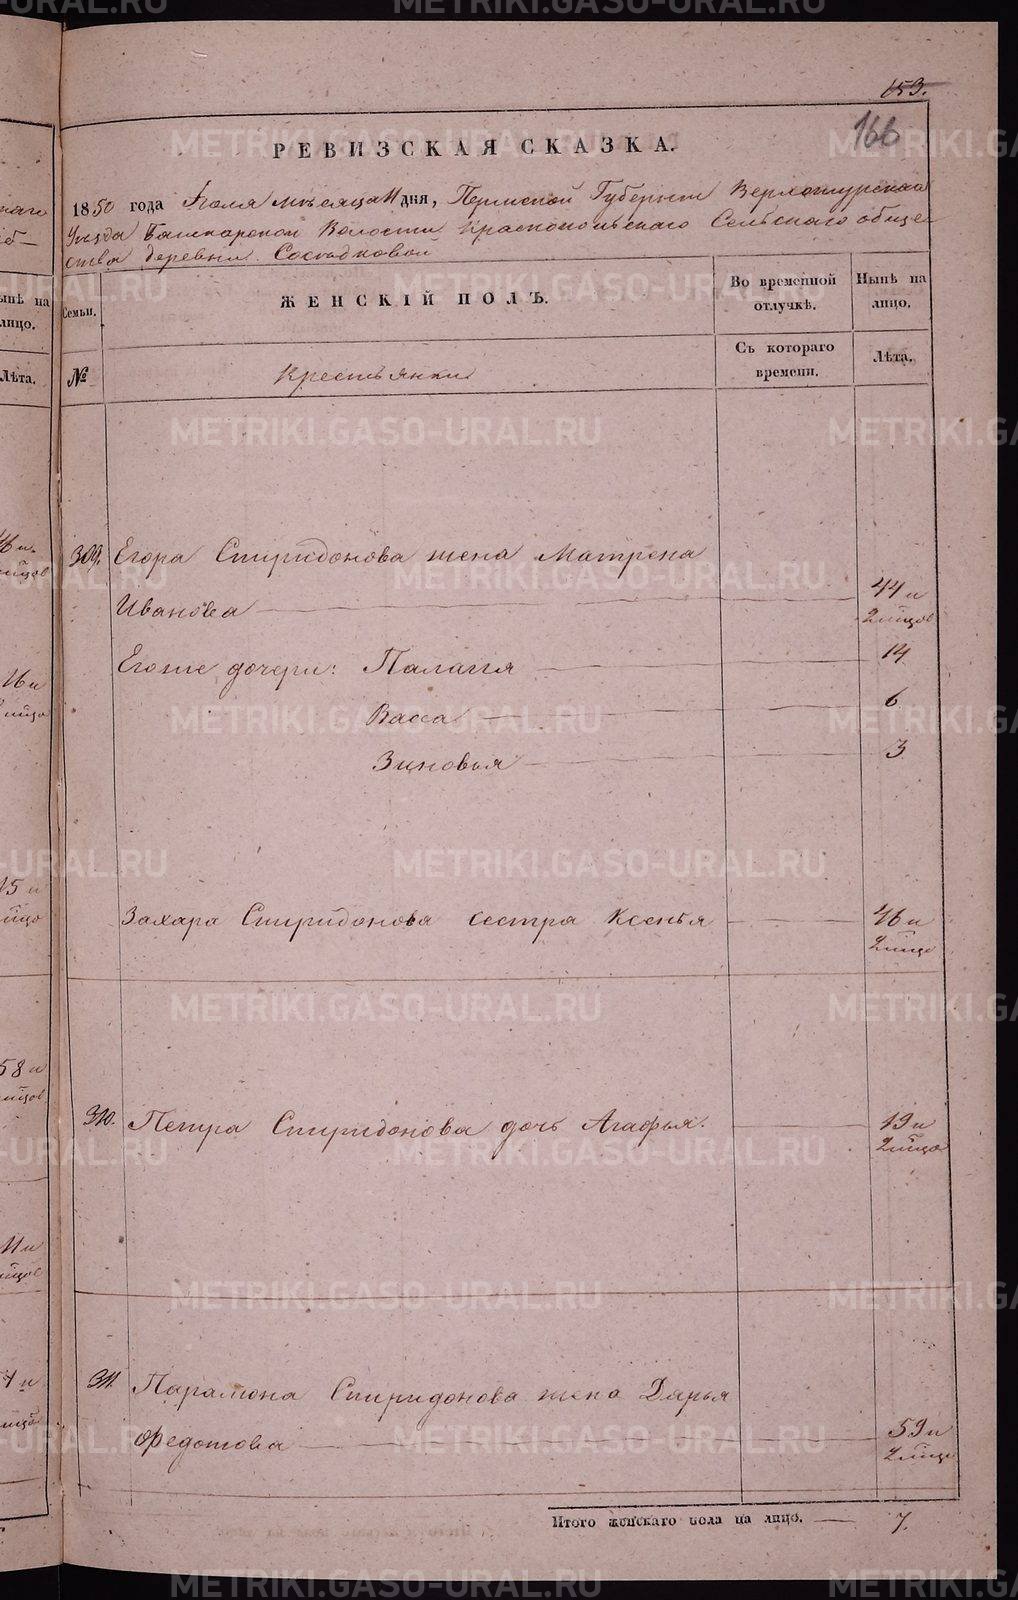 153.
166
РЕВИЗСКАЯ СКАЗКА.
1850 года Іюля месяца 11 дня, Пермской Губерніи Верхотурскаго
Уезда Башкарской Волости Краснопольскаго Сельскаго обще
ства деревни Соседковой
Семьи. ЖЕНСКІЙ ПОЛЪ. Во временной отлучкѣ. Нынѣ на лицо.
№ Крестьянки Съ котораго времени. Лѣта.
309. Егора Спиридонова жена Матрена
Иванова 44 и
2 мѣцов
Егоже дочери: Палагія 14
Васса 6
Зиновья 3
Захара Спиридонова сестра Ксенья 46 и
2 мѣца
310. Петра Спиридонова дочь Агафья. 19 и
2 мѣца
311. Парамона Спиридонова жена Дарья
Федотова 59 и
2 мѣца
Итого женскаго пола на лицо. 7.
METRIKI.GASO-URAL.RU